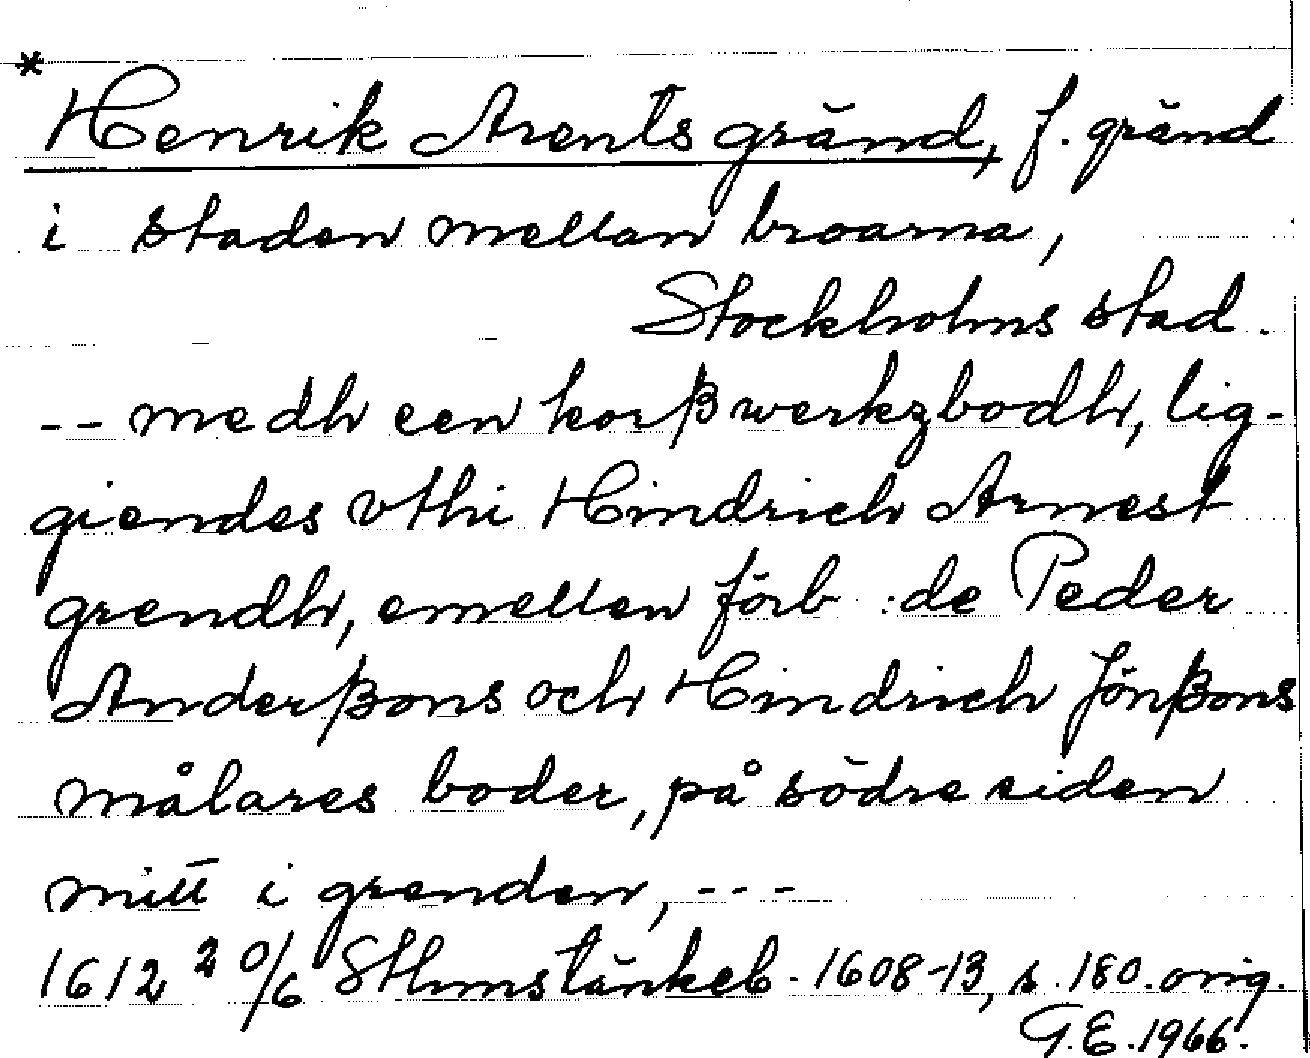 * Henrik Arents gränd, f. gränd
i staden mellan broarna,
Stockholms stad.
-- medh een korßwerkzbodh, lig-
giendes vthi Hindrich Arnest
grendh, emellen förb:de Peder
Anderßons och Hindrich Jönßons
målares boder, på södre siden
mitt i grenden, ---
1612 20/6 Sthms tänkeb. 1608-13, s. 180. orig.
G.E. 1966.